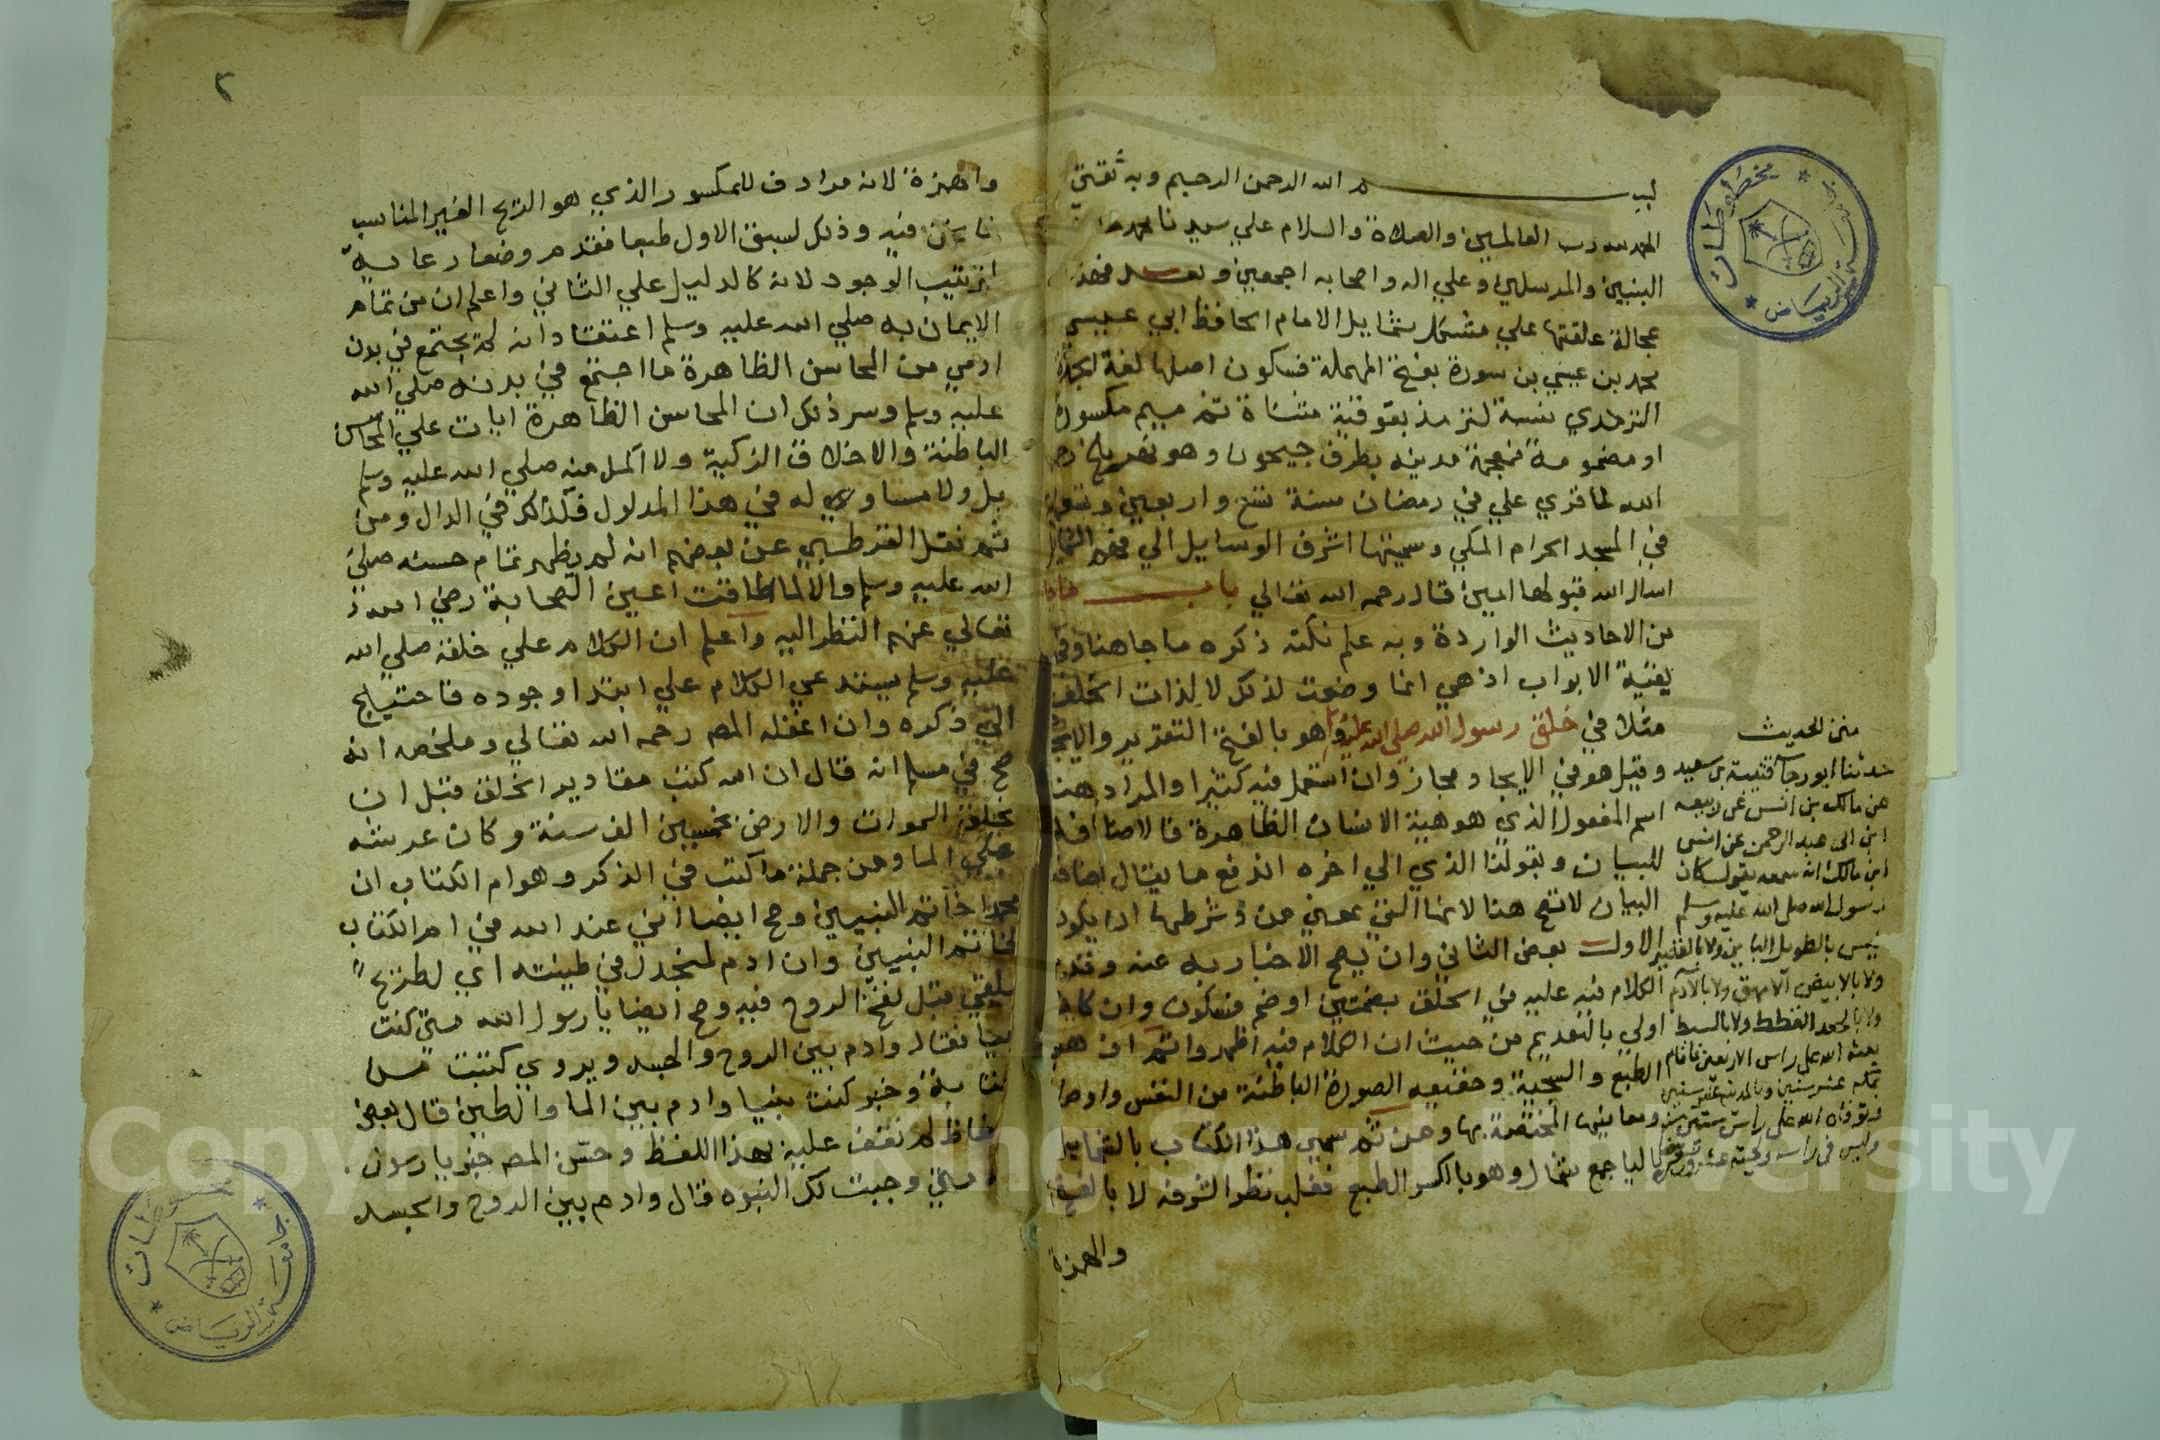 بسم الله الرحمن الرحيم وبه ثقتي
الحمد لله رب العالمين والصلاة والسلام علي سيدنا محمد
النبيين والمرسلين وعلي اله واصحابه اجمعين وبعد فهذه
عجالة علقتها علي مشكل شمايل الامام الحافظ ابي عيسي
محمد بن عيسي بن سورة بفتح المهملة فسكون اصلها لغة الحدة
الترمذي نسبة لترمذ بفوقية مثناة ثم ميم مكسورة
او مضمومة فمعجمة مدينه بطرف جيحون وهو نهر بلخ
الله لما قري علي في رمضان سنة تسع واربعين وتسعماية
في المسجد الحرام المكي وسميتها اشرف الوسايل الي فهم الشمايل
اسال الله قبولها امين قال رحمه الله تعالي باب ماجا
من الاحاديث الواردة وبه علم نكتة ذكره ما جا هنا وفي
بقية الابواب اذ هي انما وضعت لذلك لا لذات الخلق
مثلا في خلق رسول الله صلي الله عليه وسلم وهو بالفتح التقدير والايجاد
وقيل هو في الايجاد مجاز وان استعمل فيه كثيرا والمراد هنا
اسم المفعول الذي هو هيئة الانسان الظاهرة فالاضافة
للبيان وبقولنا الذي الي اخره اندفع ما يقال اضافة
البيان لا تصح هنا لانها التي بمعني من وشرطها ان يكون
الاول بعض الثاني وان يصح الاخبار به عنه وقدم
الكلام فيه عليه في الخلق بضمتين او ضم فسكون وان كان
اولي بالتقديم من حيث ان الكلام فيه اظهر واتم اذ هو
الطبع والسجية وحقيقه الصورة الباطنة من النفس واوصافها
ومعانيها المختصة بها ومن ثم سمي هذا الكتاب بالشمايل
بالياء جمع شمال وهو بالكسر الطبع فغلب نظرا لشرفه لا بالفتح
والهمزة
متن الحديث
حدثنا ابو رجاء قتيبة بن سعيد
عن مالك بن انس عن ربيعه
ابن ابى عبد الرحمن عن انس
ابن مالك انه سمعه يقول كان
رسول الله صلى الله عليه وسلم
ليس بالطويل الباين ولا بالقصير
ولا بالابيض الامهق ولا بالآدم
ولا بالجعد القطط ولا بالسبط
بعثه الله على راس الاربعين فاقام
بمكة عشر سنين وبالمدينة عشر سنين
وتوفاه الله على راس ستين سنة
وليس فى راسه ولحيته عشرون شعرة
٢
والهمزة لانه مرادف للمكسور الذي هو الريح الغير المناسب
فيه وذلك لسبق الاول طبعا فقدم وضعا رعاية
لترتيب الوجود لانه كالدليل علي الثاني واعلم ان من تمام
الايمان به صلي الله عليه وسلم اعتقاد انه لم يجتمع في بدن
ادمي من المحاسن الظاهرة ما اجتمع في بدنه صلي الله
عليه وسلم وسر ذلك ان المحاسن الظاهرة ايات علي المحاسن
الباطنة والاخلاق الزكية ولا اكمل منه صلي الله عليه وسلم
بل ولا مساوي له في هذا المدلول فكذلك في الدال ومن
ثم نقل القرطبي عن بعضهم انه لم يظهر تمام حسنه صلي
الله عليه وسلم والا لما طاقت اعين الصحابة رضي الله
تعالي عنهم النظر اليه واعلم ان الكلام علي خلقه صلي الله
عليه وسلم يستدعي الكلام علي ابتدا وجوده فاحتيج
الي ذكره وان اغفله المص رحمه الله تعالي وملخصه انه
صح في مسلم انه قال ان الله كتب مقادير الخلق قبل ان
يخلق السموات والارض بخمسين الف سنة وكان عرشه
علي الما ومن جملة ما كتب في الذكر وهو ام الكتاب ان
محمدا خاتم النبيين وصح ايضا اني عند الله في ام الكتاب
لخاتم النبيين وان ادم لمنجدل في طينته اي لطريح
ملقي قبل نفخ الروح فيه وصح ايضا يا رسول الله متي كنت
نبيا فقال وادم بين الروح والجسد ويروي كتبت من
الكتابة وخبر كنت نبيا وادم بين الما والطين قال بعض
الحفاظ لم نقف عليه بهذا اللفظ وحسن المص خبر يا رسول
الله متي وجبت لك النبوه قال وادم بين الروح والجسد
مخطوطات
جامعة الرياض
مخطوطات
جامعة الرياض
Copyright © King Saud University